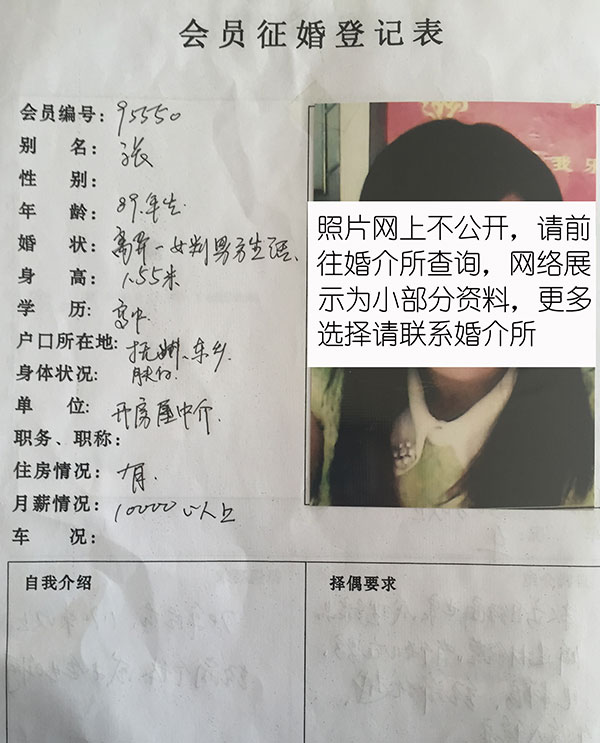 会员征婚登记表
会员编号：95550
别 名：张
性 别：
年 龄：89.年生
婚 状：离异一女判男方生活、
身 高：1.55米
学 历：高中
户口所在地：抚州、东乡
身体状况：
单 位：开房屋中介
职务、职称：
住房情况：有.
月薪情况：10000以上
车 况：
照片网上不公开，请前
往婚介所查询，网络展
示为小部分资料，更多
选择请联系婚介所
自我介绍
择偶要求